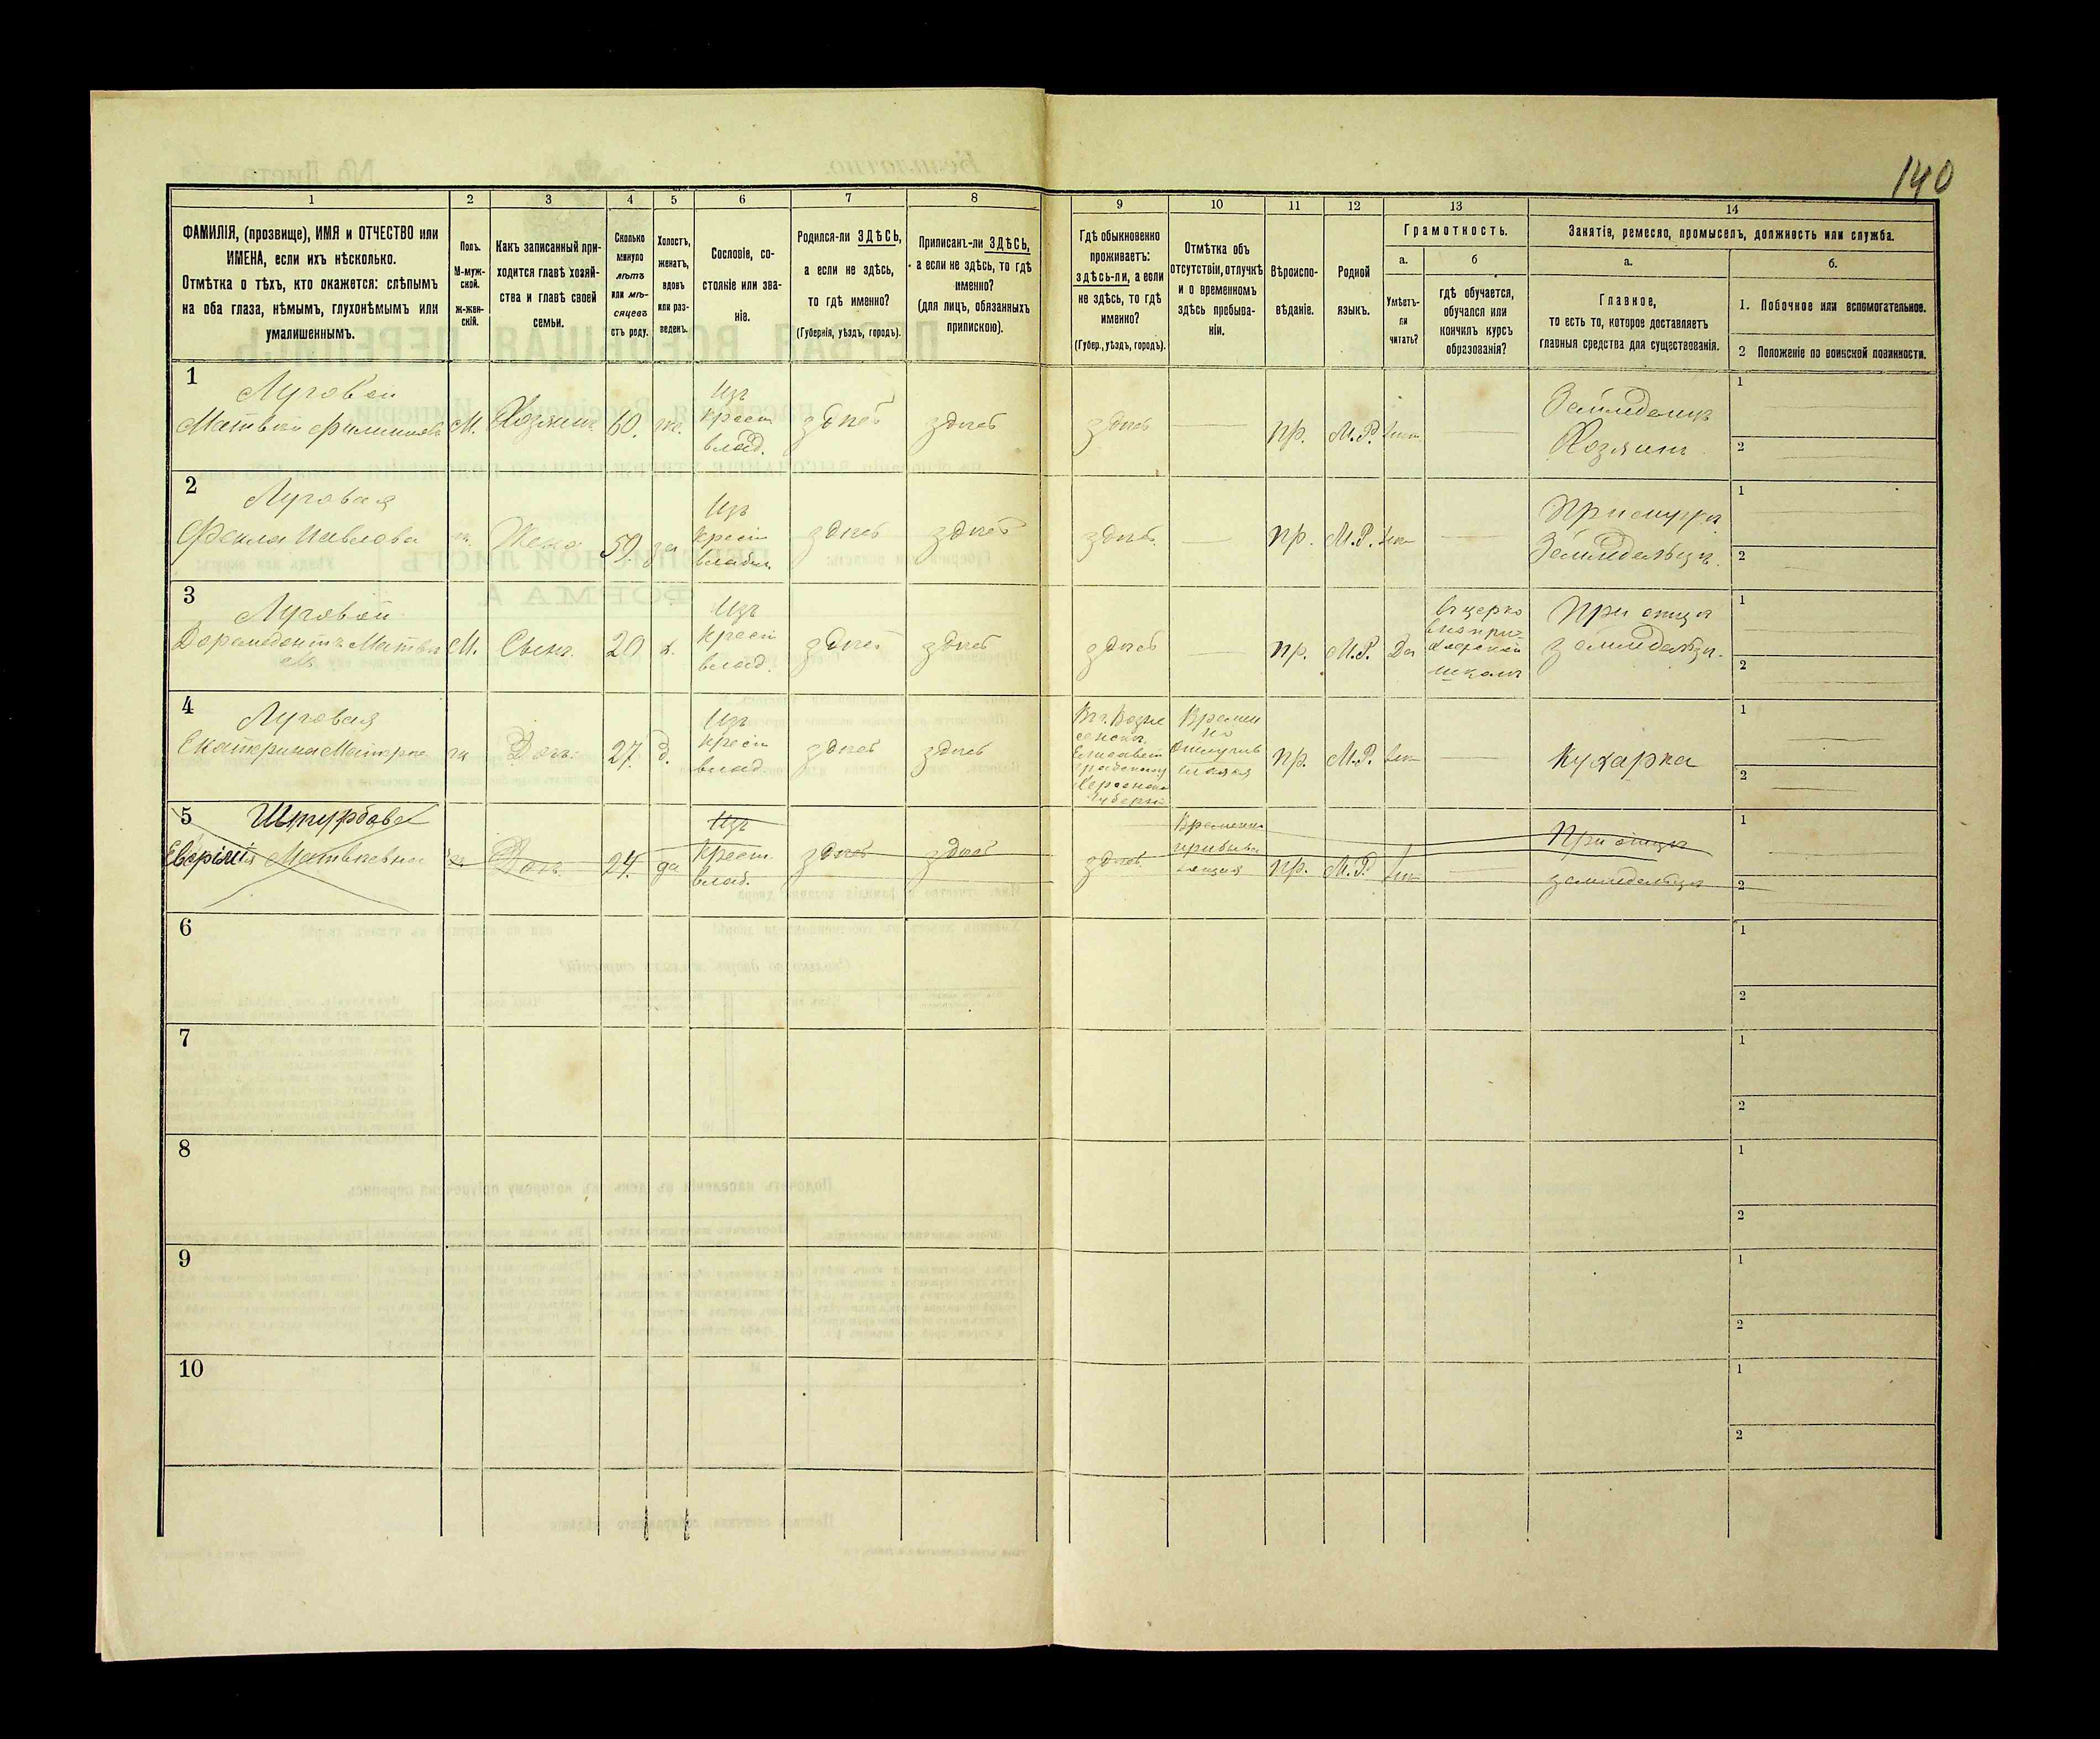 140
1
2
3
4
5
6
7
8
9
10
11
12
13
14
ФАМИЛІЯ, (прозвище), ИМЯ и ОТЧЕСТВО или
ИМЕНА, если ихъ нѣсколько.
Отмѣтка о тѣхъ, кто окажется: слѣпымъ
на оба глаза, нѣмымъ, глухонѣмымъ или
умалишеннымъ.
Полъ.
М-муж-
ской.
ж-жен-
скій.
Какъ записанный при-
ходится главѣ хозяй-
ства и главѣ своей
семьи.
Сколько
минуло
лѣтъ
или мѣ-
сяцевъ
отъ роду.
Холостъ,
женатъ,
вдовъ
или раз-
веденъ.
Сословіе, со-
стояніе или зва-
ніе.
Родился-ли ЗДѢСЬ,
а если не здѣсь,
то гдѣ именно?
(Губернія, уѣздъ, городъ).
Приписанъ-ли ЗДѢСЬ,
а если не здѣсь, то гдѣ
именно?
(для лицъ, обязанныхъ
припискою).
Гдѣ обыкновенно
проживаетъ:
здѣсь-ли, а если
не здѣсь, то гдѣ
именно?
(Губер., уѣздъ, городъ).
Отмѣтка объ
отсутствіи, отлучкѣ
и о временномъ
здѣсь пребыва-
ніи.
Вѣроиспо-
вѣданіе.
Родной
языкъ.
Грамотность.
а.
Умѣетъ-
ли
читать?
б
гдѣ обучается,
обучался или
кончилъ курсъ
образованія?
Занятіе, ремесло, промыселъ, должность или служба.
а.
Главное,
то есть то, которое доставляетъ
главныя средства для существованія.
б.
1. Побочное или вспомогательное.
2 Положеніе по воинской повинности.
1
Луговой
Матвѣй Филиповъ
М.
Хозяинъ
60.
Изъ
крест
влад.
здѣсь
здѣсь
здѣсь
пр.
М.Р.
Земледелецъ
Хозяинъ
1
2
2
Луговая
Фекла Павлова
Жена
59.
Изъ
крест
владел
здѣсь
здѣсь
здѣсь
пр.
М.Р.
При мужѣ
Земледельцѣ
1
2
3
Луговой
М.
Сынъ.
20
х.
Изъ
крест
влад.
здѣсь
здѣсь
здѣсь
пр.
М.Р.
Да
Въ церко
школѣ
При отцѣ
земледельцѣ.
1
2
4
Луговая
Екатерина
Дочь
27.
д.
Изъ
крест
влад
здѣсь
здѣсь
Въ г. Возне
сенскѣ
Елисавет
градскому
Херсонск
Губерніи
Времен
но
Отлучив
шаяся
пр.
М.Р.
Кухарка
1
2
5
Евфимія Матвѣевна
Дочь
24.
Изъ
крест.
влад.
здѣсь
здѣсь
здѣсь
Временно
пребыва
ющая
пр.
М.Р.
При отцѣ
земледельцѣ
1
2
6
1
2
7
1
2
8
1
2
9
1
2
10
1
2